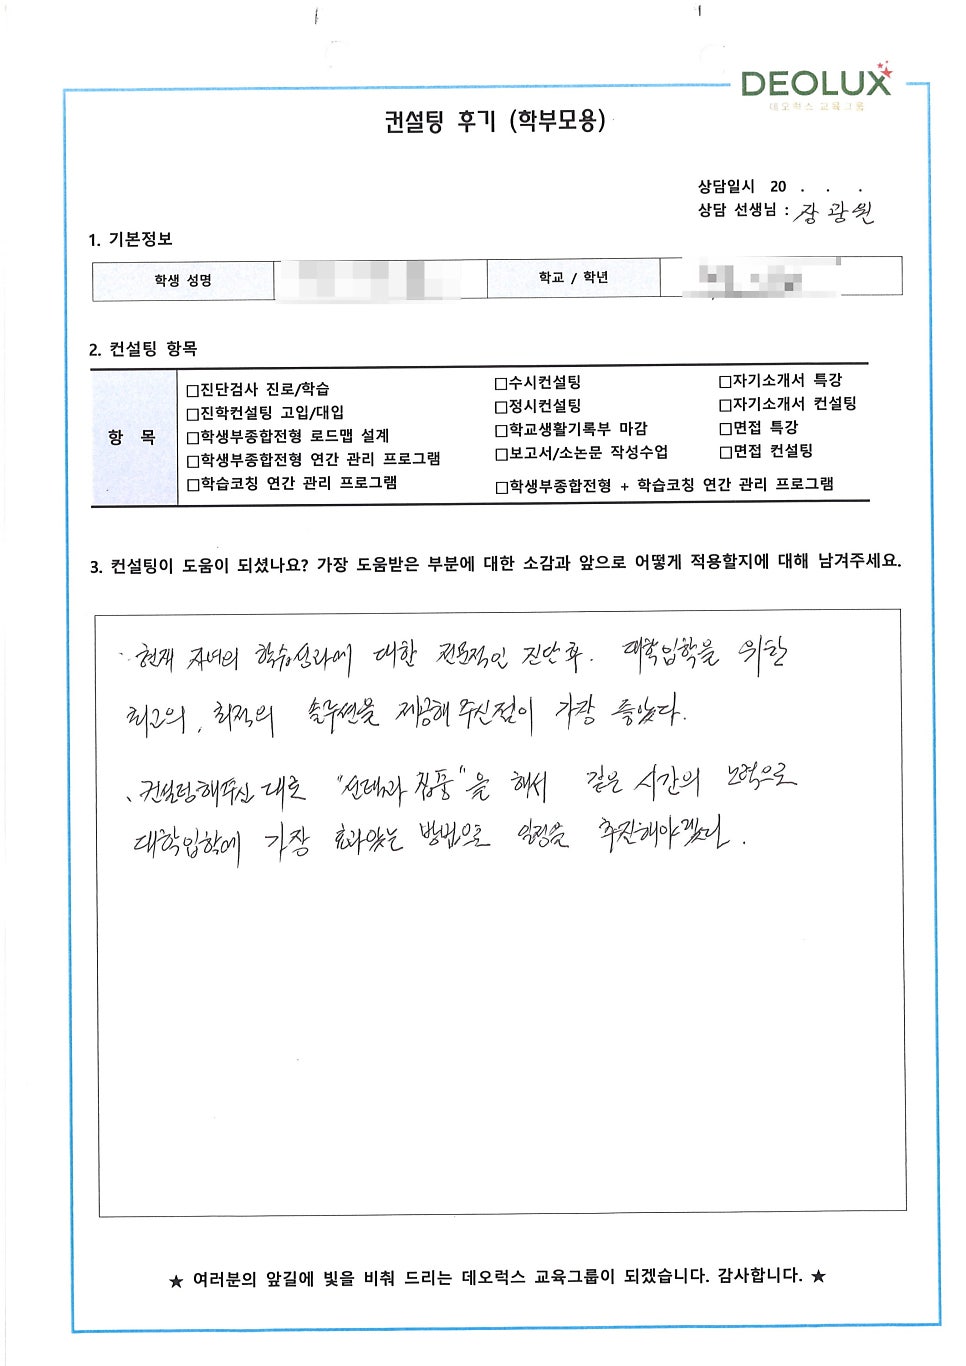 DEOLUX
데오럭스 교육그룹
컨설팅 후기 (학부모용)
상담일시 20 . . .
상담 선생님 : 장광원
1. 기본정보
학생 성명
학교 / 학년
2. 컨설팅 항목
항 목
□진단검사 진로/학습
□진학컨설팅 고입/대입
□학생부종합전형 로드맵 설계
□학생부종합전형 연간 관리 프로그램
□학습코칭 연간 관리 프로그램
□수시컨설팅
□정시컨설팅
□학교생활기록부 마감
□보고서/소논문 작성수업
□학생부종합전형 + 학습코칭 연간 관리 프로그램
□자기소개서 특강
□자기소개서 컨설팅
□면접 특강
□면접 컨설팅
3. 컨설팅이 도움이 되셨나요? 가장 도움받은 부분에 대한 소감과 앞으로 어떻게 적용할지에 대해 남겨주세요.
· 현재 자녀의 학습성과에 대한 전문적인 진단후. 대학입학을 위한
최고의, 최적의 솔루션을 제공해 주신점이 가장 좋았다.
· 컨설팅해주신 대로 "선택과 집중"을 해서 같은 시간의 노력으로
대학입학에 가장 효과있는 방법으로 일정을 추진해야겠다.
★ 여러분의 앞길에 빛을 비춰 드리는 데오럭스 교육그룹이 되겠습니다. 감사합니다. ★